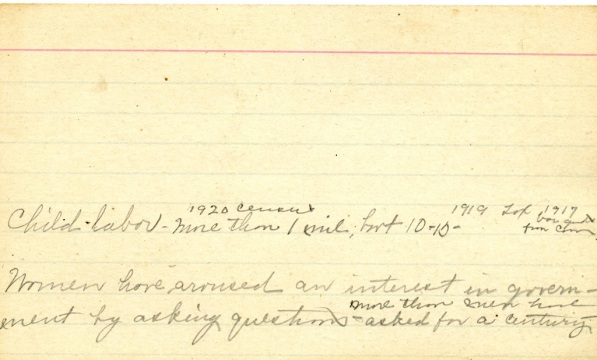 1920 census 1919 1917
Child labor - More than 1 mil, 10-15-
Women have aroused an interest in govern-
more than men have
ment by asking questions - asked for a century